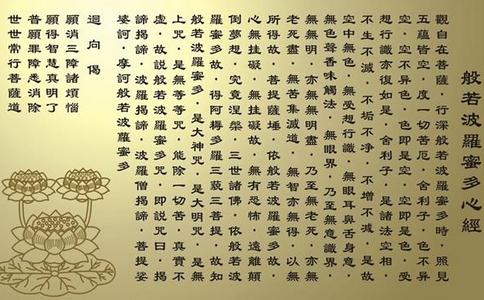 般若波羅蜜多心經
觀自在菩薩·行深般若波羅蜜多時·照見
五蘊皆空·度一切苦厄·舍利子·色不異
空·空不異色·色即是空·空即是色·受
想行識亦復如是·舍利子·是諸法空相·
不生不滅·不垢不净·不增不減·是故
空中無色·無受想行識·無眼耳鼻舌身意·
無色聲香味觸法·無眼界·乃至無意識界·
無無明·亦無無明盡·乃至無老死·亦無
老死盡·無苦集滅道·無智亦無得·以無
所得故·菩提薩埵·依般若波羅蜜多故·
心無挂礙·無挂礙故·無有恐怖·遠離顛
倒夢想·究竟涅槃·三世諸佛·依般若波
羅蜜多故·得阿耨多羅三藐三菩提·故知
般若波羅蜜多·是大神咒·是大明咒·是無
上咒·是無等等咒·能除一切苦·真實不
虛·故說般若波羅蜜多咒·即說咒曰·揭
諦揭諦·波羅揭諦·波羅僧揭諦·菩提娑
婆訶·摩訶般若波羅蜜多
迴向偈
願消三障諸煩惱
願得智慧真明了
普願罪障悉消除
世世常行菩薩道